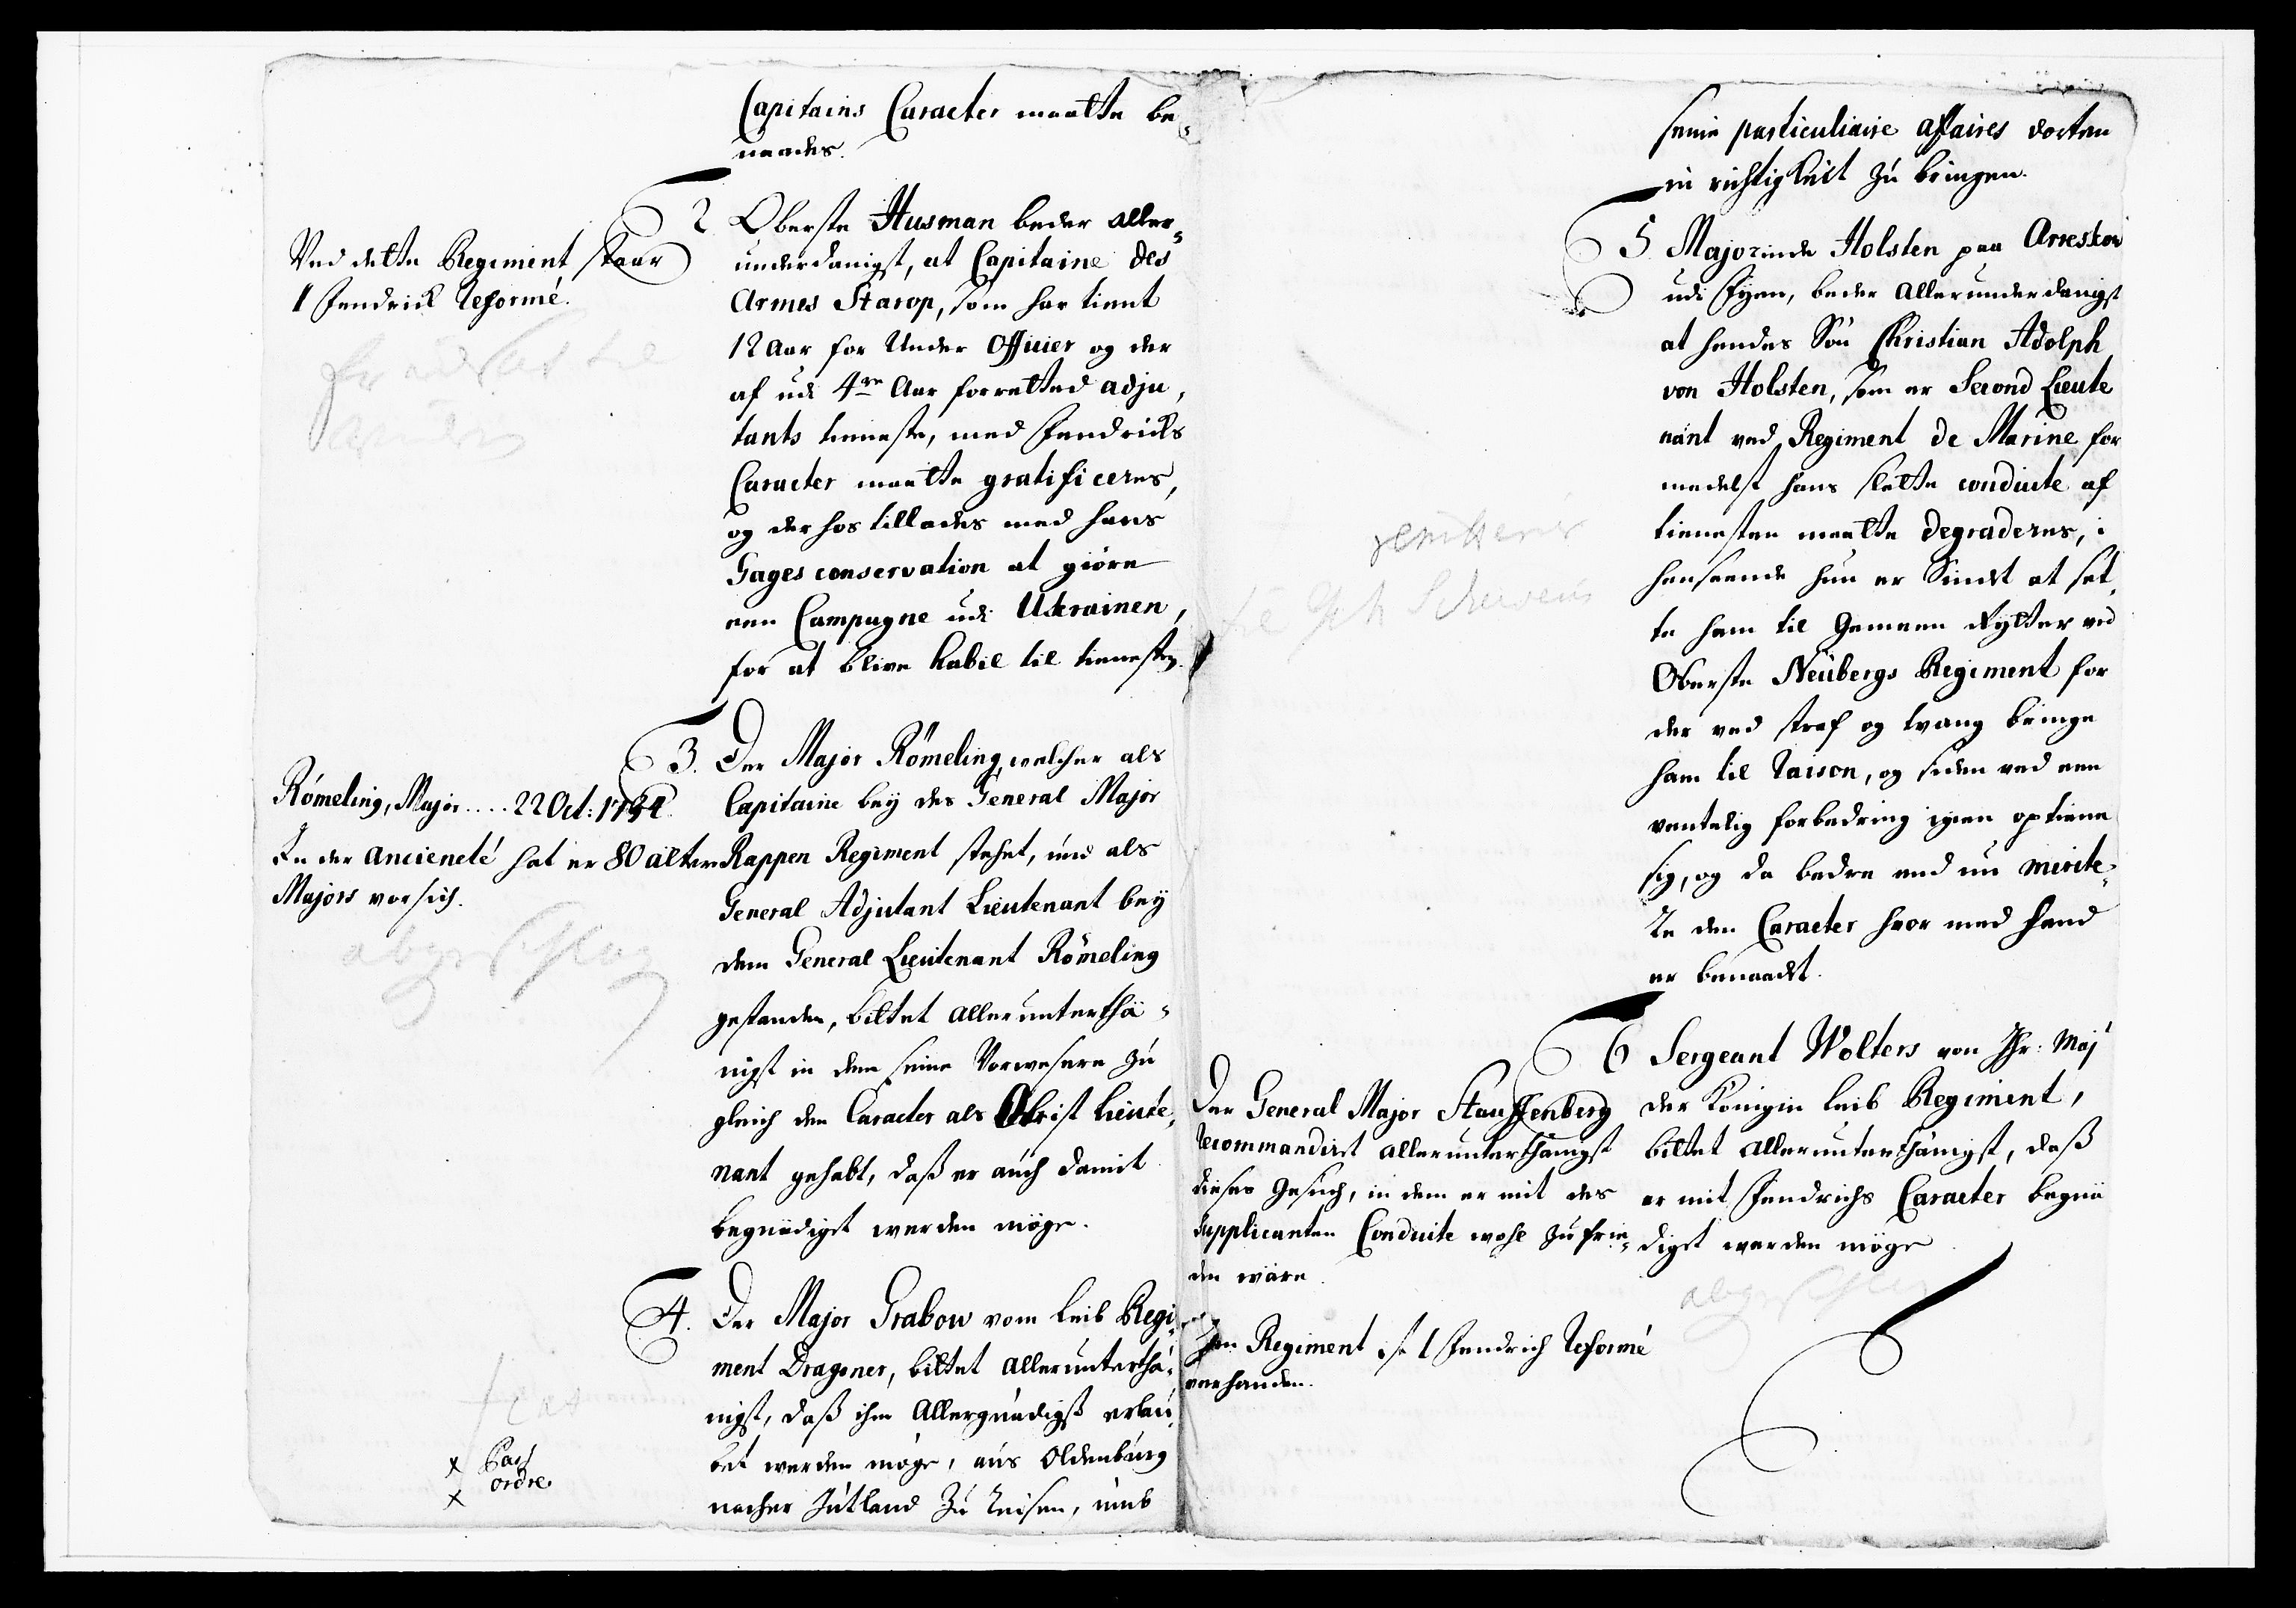 Capitains Caracter maatte be-
naades.
2 Oberste Husman beder aller-
underdanigst, at Capitaine des
Armes Starop, som har tient
12 Aar for Under Officier og der
af udi 4re Aar forretted adju,
tants tieneste, med Fendricks
Caracter maatte gratificeres,
og der hos tillades med hans
Gages conservation at giöre
een Campagne udi Ukrainen,
for at blive habil til tienesten.
Ved dette Regiment staar
1 Fendrick Reformé.
3. Der Major Römeling, welcher als
Capitaine beÿ des General Major
Rappen Regiment stehet, und als
General Adjutant Lieutenant beÿ
dem General Lieutenant Römeling
gestanden, bittet allerunterthä-
nigst in dem seine Vorwesere zu
gleich den Caracter als Obrist Lieute,
nant gehabt, daß er auch damit
begnädiget werden möge.
Römeling, Major .... 22 Oct: 1734.
In der Ancieneté hat er 80 ältere
Majors vor sich.
abgeschlag
4. Der Major Grabow vom Leib Regi-
ment Dragoner, bittet allerunterthä-
nigst, daß ihm Allergnädigst erlau,
bet werden möge, aus Oldenburg
nacher Jütland zu reisen, umb
fiat
x Pass
x ordre
seine particuliaire affaires dorten
in richtigkeit zu bringen.
5. Majorinde Holsten paa Arreskov
udi Fÿen, beder allerunderdanigst
at hendes Sön Christian Adolph
von Holsten, som er Second Lieute
nant ved Regiment de Marine for
medelst hans slette conduite af
tienesten maatte degraderes, i
henseende hun er Sindet at set,
te ham til Gemeen Rytter ved
Oberste Neubergs Regiment for
der ved straf og tvang bringe
ham til raison, og siden ved een
ventelig forbedring igien optiene
sig, og da bedre end nu merite-
re den Caracter hvor med hand
er benaadet.
6 Sergeant Wolters von Ihr: Maj
der Königin Leib Regiment,
bittet allerunterthänigst, daß
er mit Fendrichs Caracter begnä
diget werden möge
abgeschlag
Der General Major Stauffenberg
recommandirt allerunterthänigst
dieses Gesuch, in dem er mit des
Supplicanten Conduite wohl zufrie-
den wäre.
Regiment ist 1 Fendrich Reformé
vorhanden.